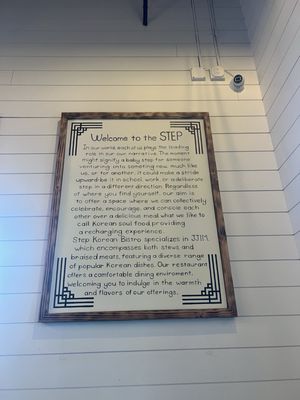 Welcome to the STEP
In our world, each of us plays the leading
role in our own narrative. The moment
might signify a baby step for someone
venturing onto something new, much like
us, or for another, it could make a stride
upward-be it in school, work, or a deliberate
step in a different direction. Regardless
of where you find yourself, our aim is
to offer a space where we can collectively
celebrate, encourage, and console each
other over a delicious meal what we like to
call Korean soul food, providing
a recharging experience.
Step Korean Bistro specializes in JJIM,
which encompasses both stews and
braised meats, featuring a diverse range
of popular Korean dishes. Our restaurant
offers a comfortable dining enviroment,
welcoming you to indulge in the warmth
and flavors of our offerings.